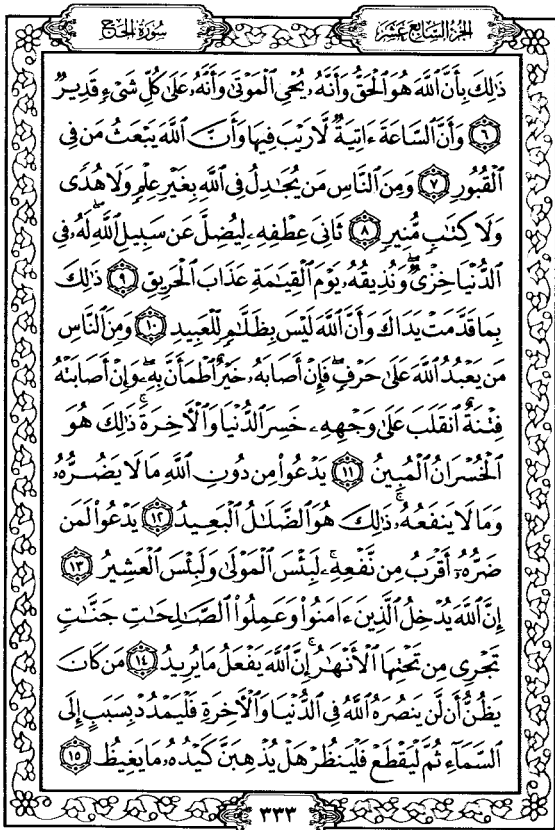 الجزء السابع عشر
سورة الحج
ذَٰلِكَ بِأَنَّ ٱللَّهَ هُوَ ٱلْحَقُّ وَأَنَّهُۥ يُحْىِ ٱلْمَوْتَىٰ وَأَنَّهُۥ عَلَىٰ كُلِّ شَىْءٍ قَدِيرٌ
٦ وَأَنَّ ٱلسَّاعَةَ ءَاتِيَةٌ لَّا رَيْبَ فِيهَا وَأَنَّ ٱللَّهَ يَبْعَثُ مَن فِى
ٱلْقُبُورِ ٧ وَمِنَ ٱلنَّاسِ مَن يُجَٰدِلُ فِى ٱللَّهِ بِغَيْرِ عِلْمٍ وَلَا هُدًى
وَلَا كِتَٰبٍ مُّنِيرٍ ٨ ثَانِىَ عِطْفِهِۦ لِيُضِلَّ عَن سَبِيلِ ٱللَّهِ لَهُۥ فِى
ٱلدُّنْيَا خِزْىٌ وَنُذِيقُهُۥ يَوْمَ ٱلْقِيَٰمَةِ عَذَابَ ٱلْحَرِيقِ ٩ ذَٰلِكَ
بِمَا قَدَّمَتْ يَدَاكَ وَأَنَّ ٱللَّهَ لَيْسَ بِظَلَّٰمٍ لِّلْعَبِيدِ ١٠ وَمِنَ ٱلنَّاسِ
مَن يَعْبُدُ ٱللَّهَ عَلَىٰ حَرْفٍ فَإِنْ أَصَابَهُۥ خَيْرٌ ٱطْمَأَنَّ بِهِۦ وَإِنْ أَصَابَتْهُ
فِتْنَةٌ ٱنقَلَبَ عَلَىٰ وَجْهِهِۦ خَسِرَ ٱلدُّنْيَا وَٱلْءَاخِرَةَ ۚ ذَٰلِكَ هُوَ
ٱلْخُسْرَانُ ٱلْمُبِينُ ١١ يَدْعُوا۟ مِن دُونِ ٱللَّهِ مَا لَا يَضُرُّهُۥ
وَمَا لَا يَنفَعُهُۥ ۚ ذَٰلِكَ هُوَ ٱلضَّلَٰلُ ٱلْبَعِيدُ ١٢ يَدْعُوا۟ لَمَن
ضَرُّهُۥٓ أَقْرَبُ مِن نَّفْعِهِۦ ۚ لَبِئْسَ ٱلْمَوْلَىٰ وَلَبِئْسَ ٱلْعَشِيرُ ١٣
إِنَّ ٱللَّهَ يُدْخِلُ ٱلَّذِينَ ءَامَنُوا۟ وَعَمِلُوا۟ ٱلصَّٰلِحَٰتِ جَنَّٰتٍ
تَجْرِى مِن تَحْتِهَا ٱلْأَنْهَٰرُ ۚ إِنَّ ٱللَّهَ يَفْعَلُ مَا يُرِيدُ ١٤ مَن كَانَ
يَظُنُّ أَن لَّن يَنصُرَهُ ٱللَّهُ فِى ٱلدُّنْيَا وَٱلْءَاخِرَةِ فَلْيَمْدُدْ بِسَبَبٍ إِلَى
ٱلسَّمَآءِ ثُمَّ لْيَقْطَعْ فَلْيَنظُرْ هَلْ يُذْهِبَنَّ كَيْدُهُۥ مَا يَغِيظُ ١٥
٣٣٣